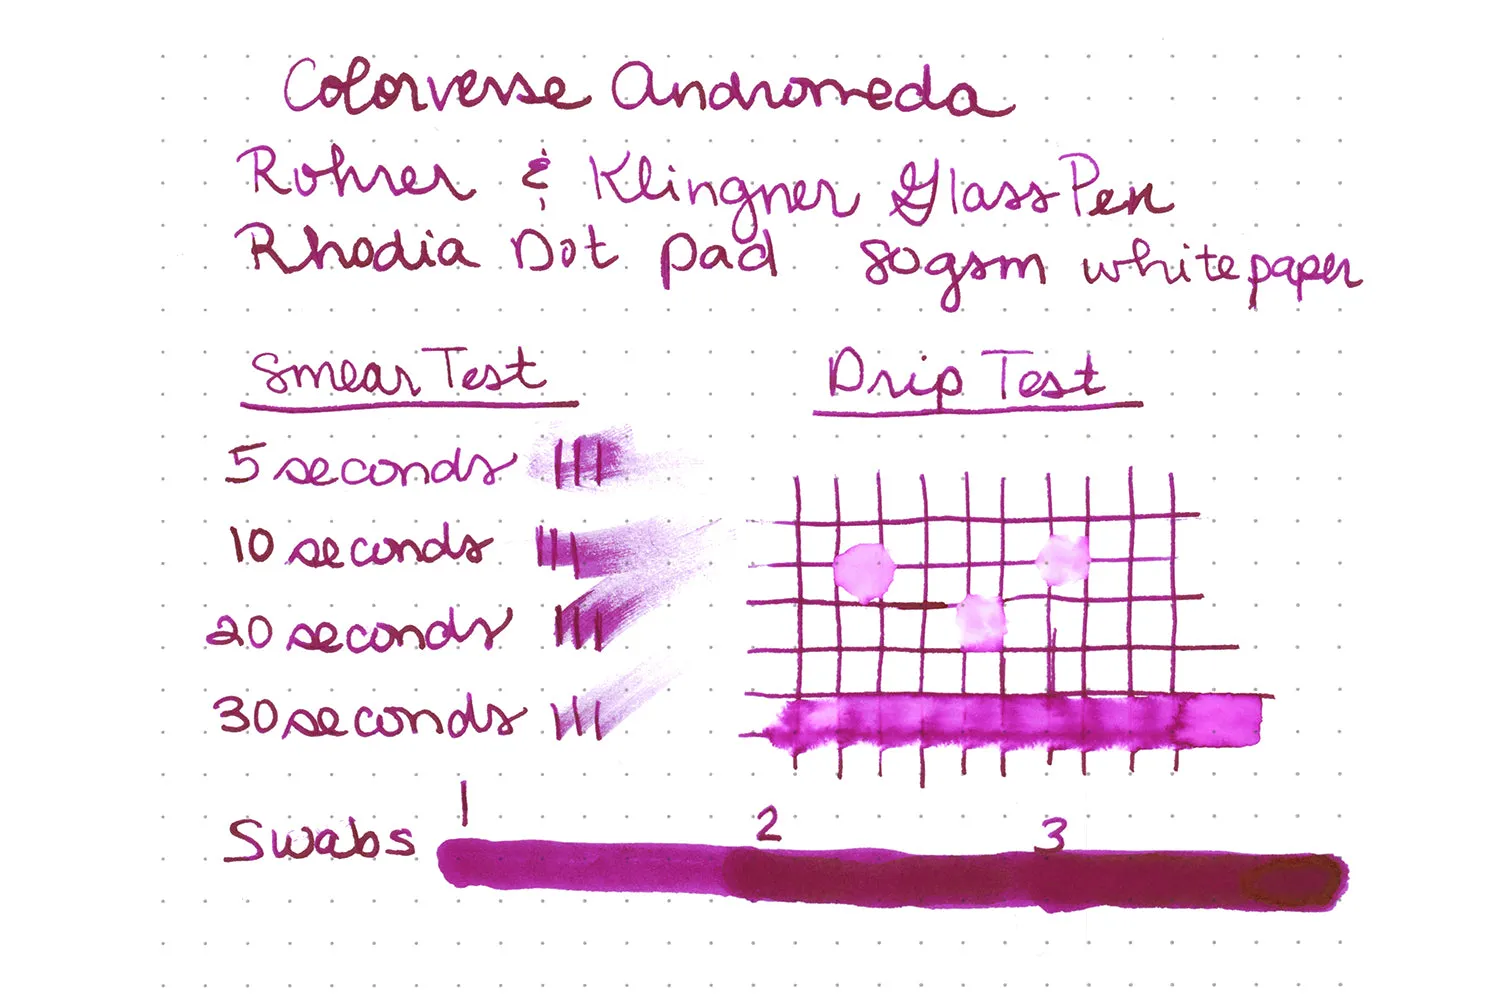 Colorverse Andromeda
Rohrer & Klingner Glass Pen
Rhodia Dot Pad 80gsm white paper
Smear Test
5 seconds
10 seconds
20 seconds
30 seconds
Drip Test
Swabs 1 2 3